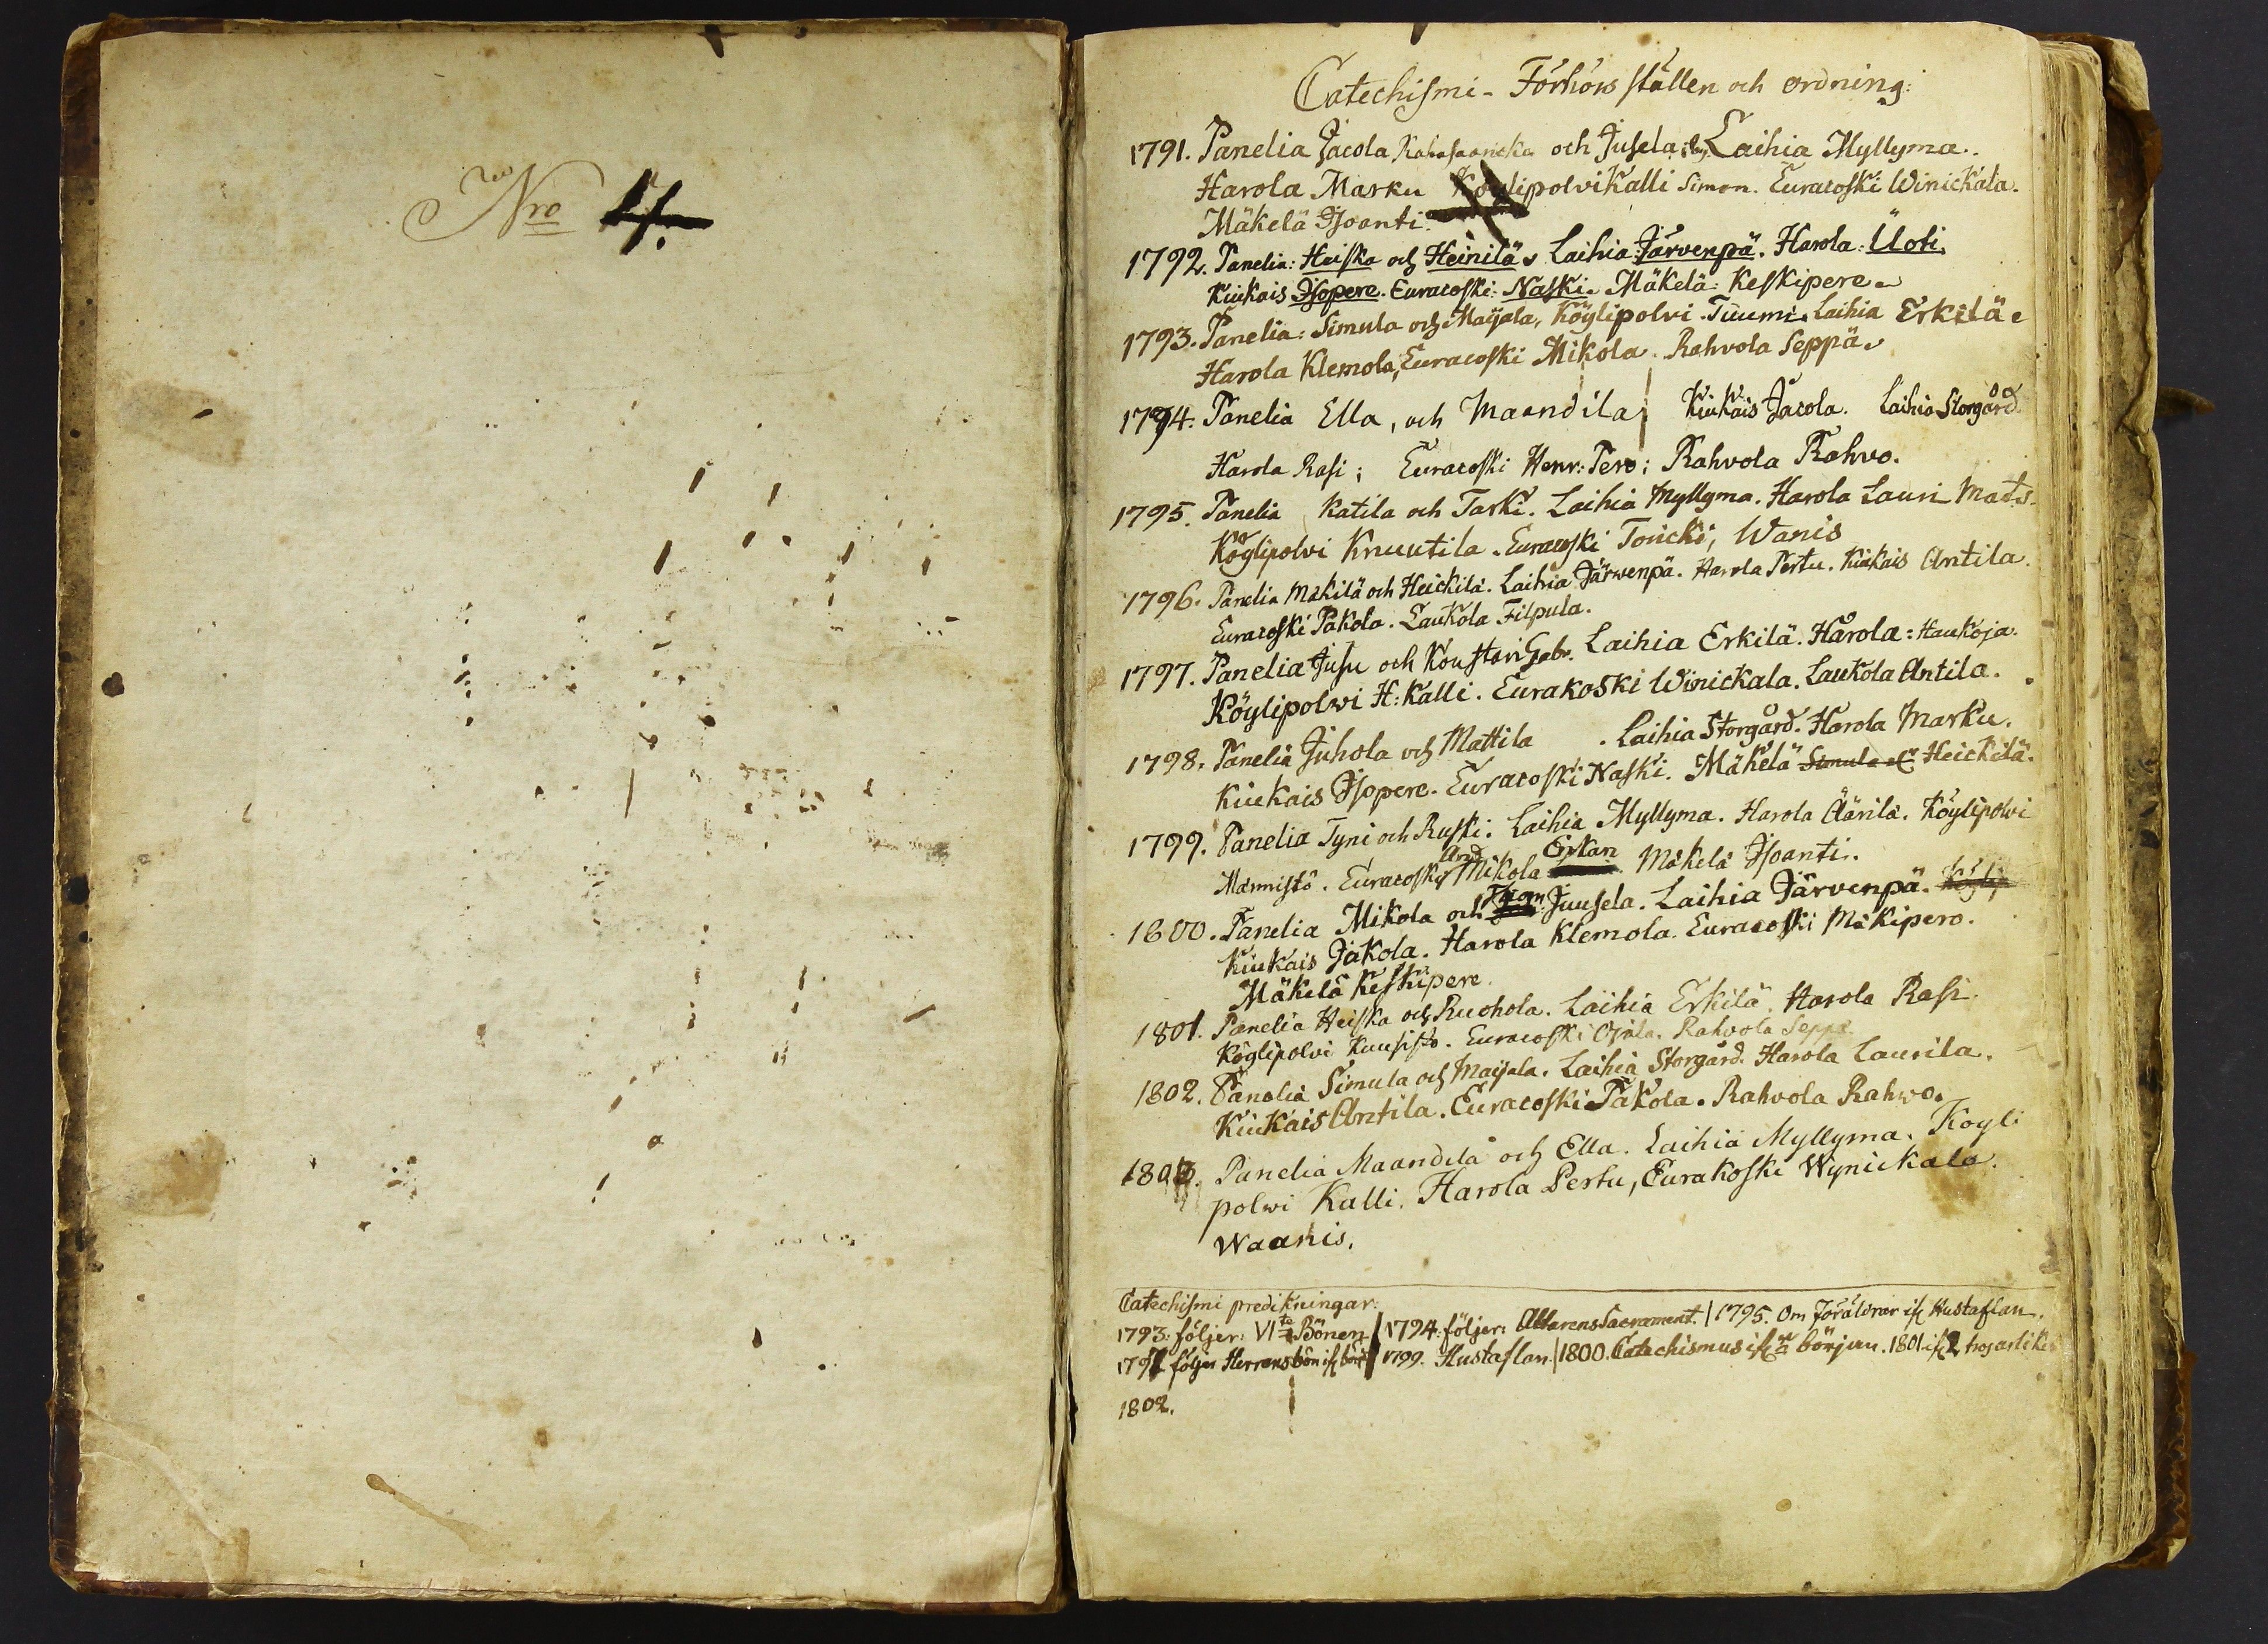 Nro 4.
Catechismi-Förhörs ställen och ordning:
1791. Panelia Jacola och Jusela Laihia Myllyma.
Harola Marku Köylipolvi Kalli Simon. Euracoski Winickala.
Mäkelä Isoanti.
1792. Panelia: Heiska och Heinilä. Laihia Järvenpä. Harola: Uoti.
Kiukais Isopere. Euracoski: Naski. Mäkelä: Keskipere.
1793. Panelia: Simula och Maijala, Köylipolvi Tuumi. Laihia Erkilä.
Harola Klemola, Euracoski Mikola. Rahvola Seppä.
1794. Panelia Ella, och Maandila; Kiukais Jacola. Laihia Storgård
Harola Rasi; Euracoski Henr: Pero; Rahvola Rahvo.
1795. Panelia Katila och Taski. Laihia Myllyma. Harola Lauri Mats.
Köylipolvi Knuutila. Euracoski Tonicki, Wanis
1796. Panelia Mäkilä och Heickilä. Laihia Järwenpä. Harola Pertu. Kiukais Antila.
Euracoski Pakola. Laukola Filpula.
1797. Panelia Jusu och Koustari Gabr. Laihia Erkilä. Harola: Haukoja.
Köylipolwi H: Kalli. Eurakoski Winickala. Laukola Antila.
1798. Panelia Juhola och Mattila. Laihia Storgård. Harola Marku.
Kiukais Isopere. Euracoski Naski. Mäkelä Simula Heickilä.
1799. Panelia Tyni och Ruski. Laihia Myllyma. Harola Äärilä. Köylipolvi
Mannistö. Euracoski And Mikola. Mäkelä Isoanti.
1800. Panelia Mikola och Juusela. Laihia Järvenpä. Köylip
Kiukais Jakola. Harola Klemola. Euracoski Mäkipero.
Mäkelä Keskipere.
1801. Panelia Heiska och Ruohola. Laihia Erkilä. Harola Rasi.
Köylipolvi Kuusisto. Euracoski Ojala. Rahvola Seppä.
1802. Panelia Simula och Maijala. Laihia Storgård. Harola Laurila.
Kiukais Antila. Euracoski Pakola. Rahvola Rahwo.
1803. Panelia Maandila och Ella. Laihia Myllyma. Köyli
polwi Kalli. Harola Pertu, Eurakoski Wynickala.
Waanis.
Catechismi predikningar:
1793: följer: VI te Bönen 1794: följer: Altarens Sacrament. 1795. Om Föräldrar Hustaflan.
följer Herrans bön 1799. Hustaflan. 1800. Catechismus början. 1801
1802.